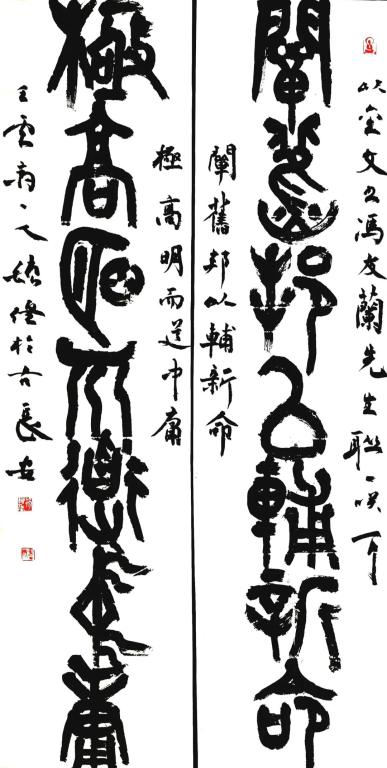 以金文馮友蘭先生聯
闡舊邦以輔新命
闡舊邦以輔新命
極高明而道中庸
極高明而道中庸
於古長安